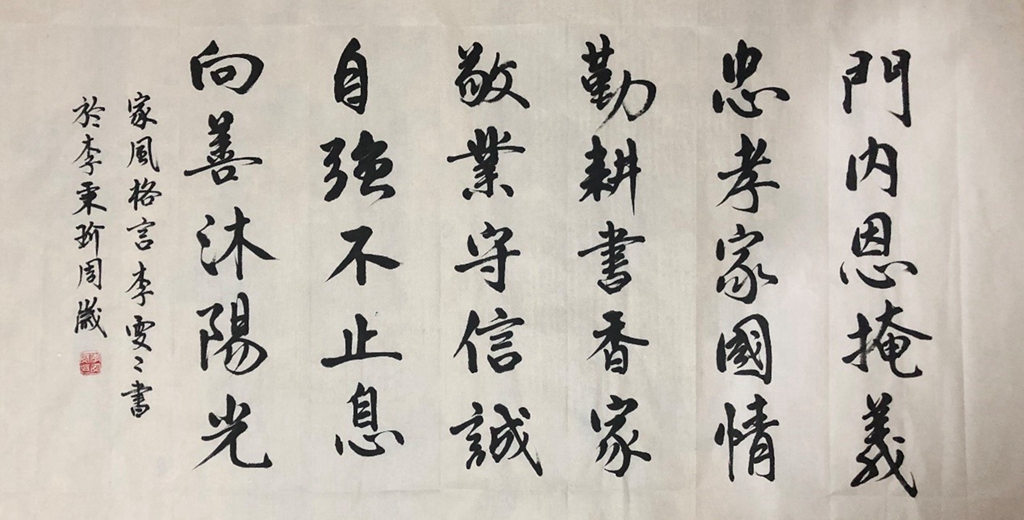 門内恩掩義
忠孝家國情
勤耕書香家
敬業守信誠
自強不止息
向善沐陽光
家風格言李雯〻書
於李秉珍周歲